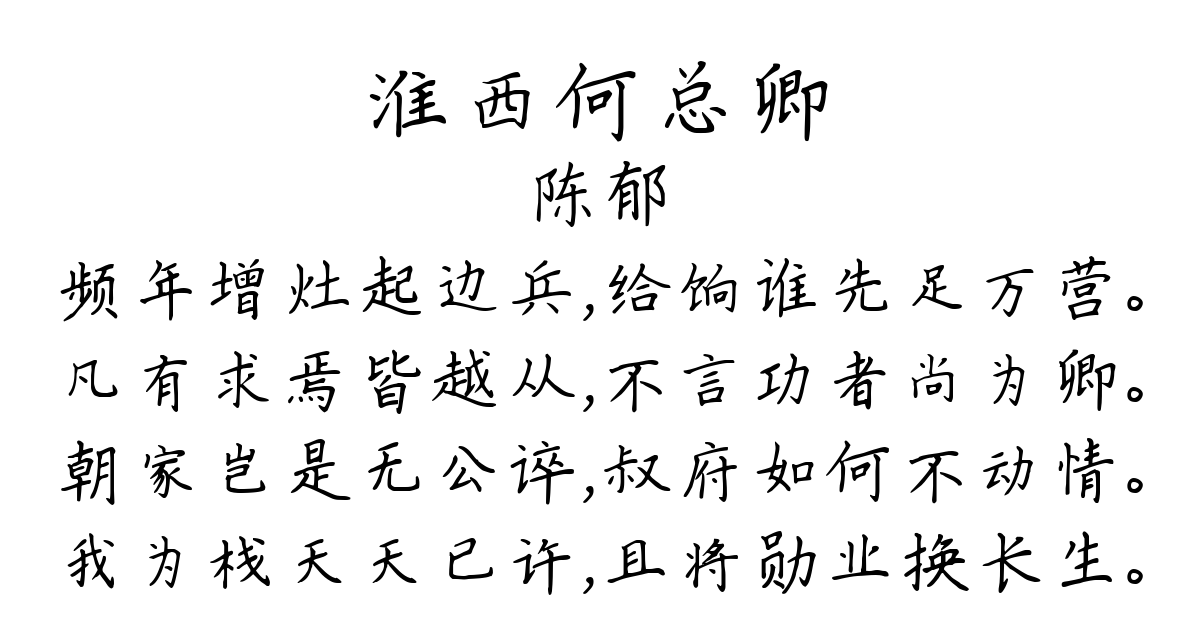 淮西何总卿
陈郁
频年增灶起边兵,给饷谁先足万营。
凡有求焉皆越从,不言功者尚为卿。
朝家岂是无公谇,叔府如何不动情。
我为栈天天已许,且将勋业换长生。